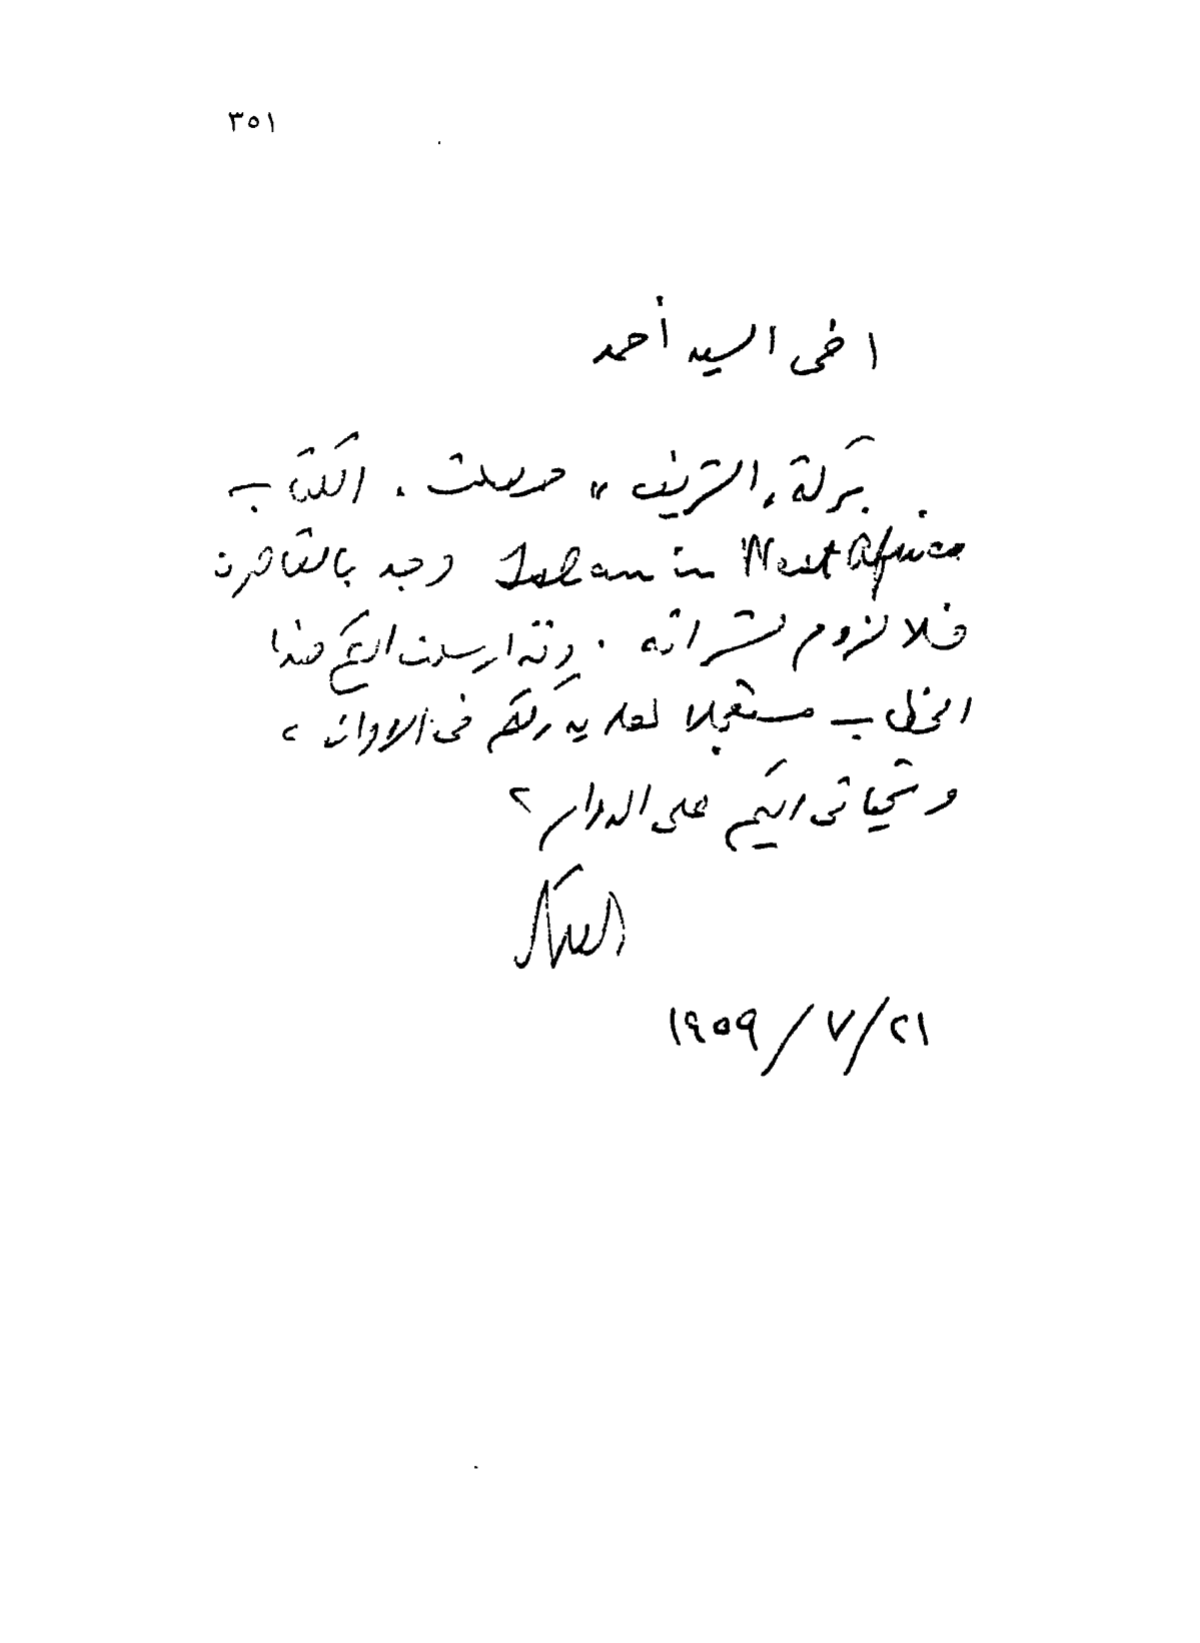 ٣٥١
اخى السيد أحمد
بركة "الشريف" حصلت . الكتاب
Islam in West Africa وجد بالقاهرة
فلا لزوم لشرائه . وقد ارسلت اليكم هذا
الخطاب مستعجلا لعله يدرككم فى الاوان ،
وتحياتى اليكم على الدوام ؟
٢١/٧/١٩٥٩